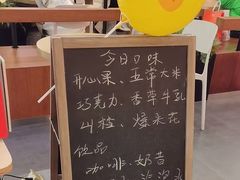 今日口味
开心果、五常大米
巧克力、香草牛乳
山楂、爆米花
饮品
咖啡、奶昔